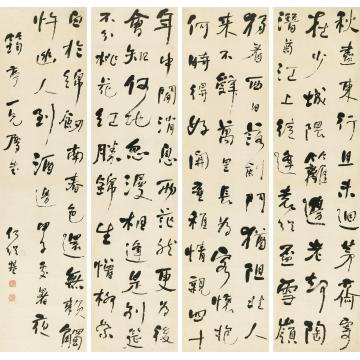 秋盡東行且未迴茅齋寄
在少城隈籬邊老却陶
潛菊江上徒逢袁紹盃雪嶺
獨看西日落劍門猶阻北人
來不辭萬里長為客懷抱
何時得好開童稚情親四十
年中間消息兩茫然更為後
會知何地忽漫相逢是別筵
不分桃花紅勝錦生憎柳絮
白於綿劍南春色還無賴觸
忤愁人到酒邊 暑夜
一兄屬 何紹基